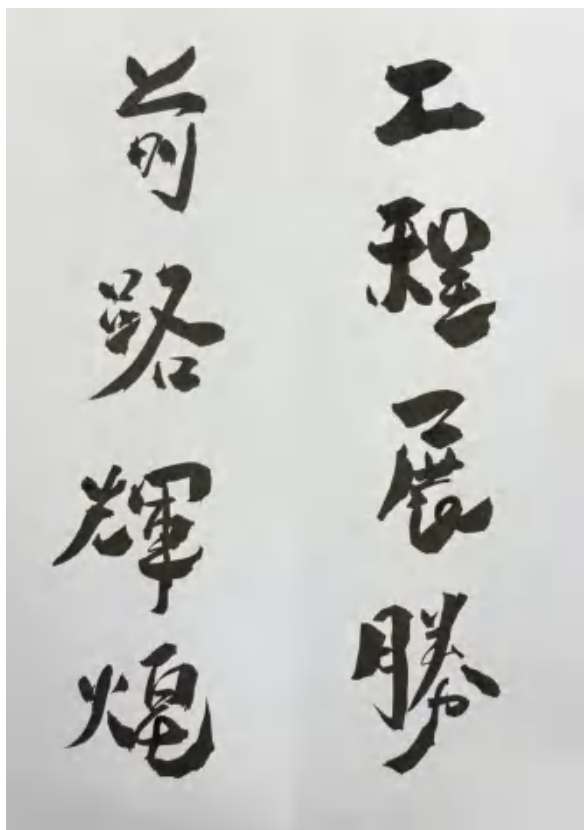 工程展勝
前路輝煌